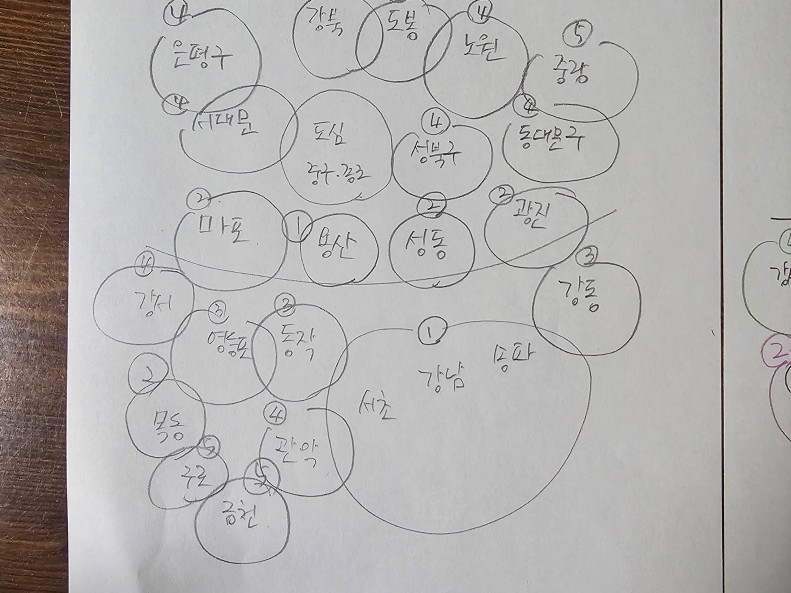 ④
은평구
강북
도봉
④
노원
⑤
중랑
④
서대문
도심
중구·종로
④
성북구
④
동대문구
②
마포
①
용산
②
성동
②
광진
④
강서
③
영등포
③
동작
③
강동
①
서초
강남
송파
②
목동
④
관악
구로
⑤
금천
②